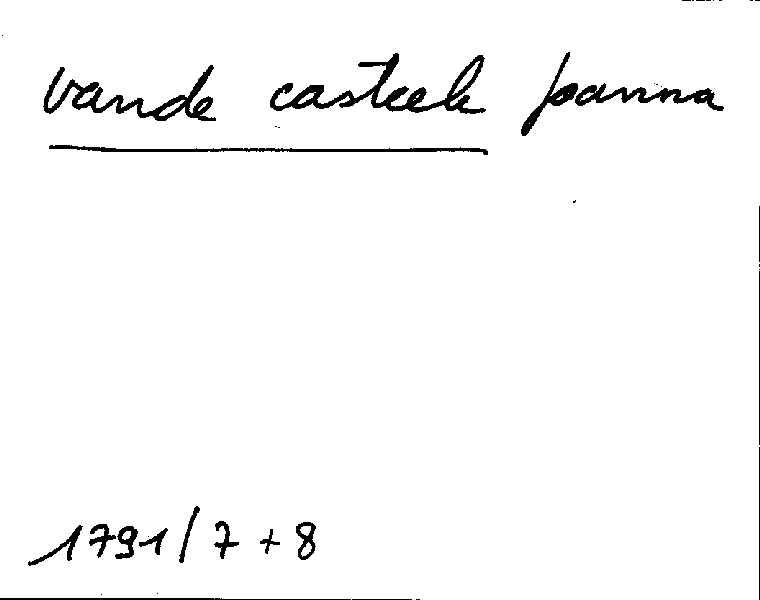 vande casteele Joanna
1791/7 + 8